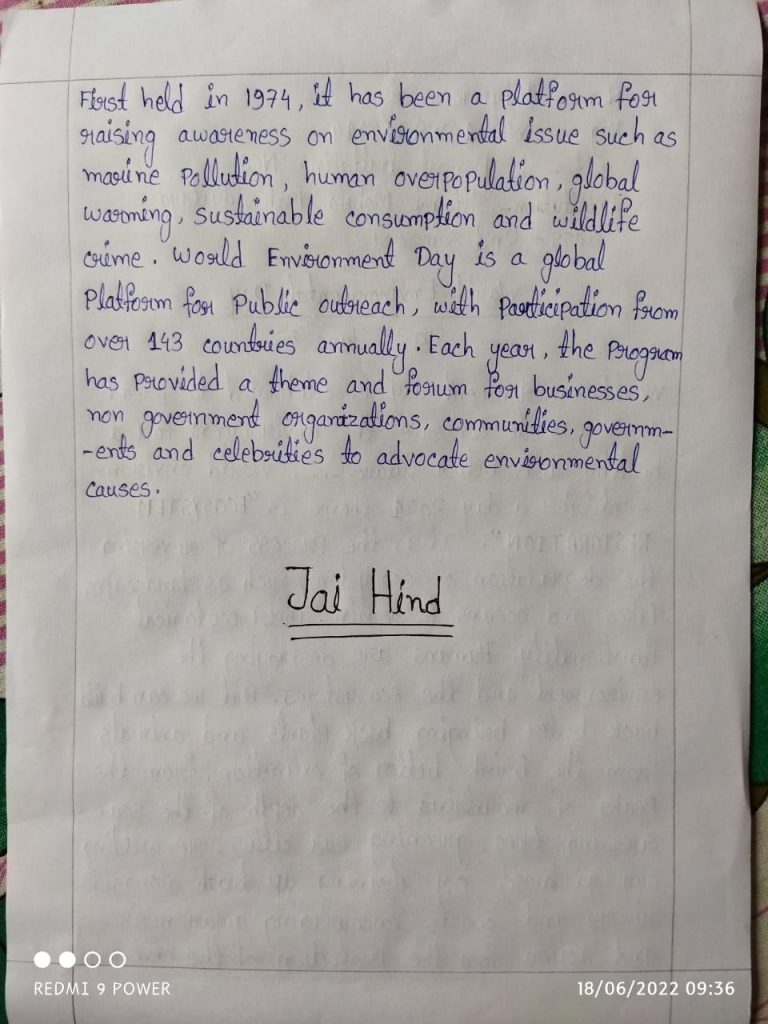 First held in 1974, it has been a platform for
raising awareness on environmental issue such as
marine Pollution, human overpopulation, global
warming, sustainable consumption and wildlife
crime. World Environment Day is a global
Platform for Public outreach, with Participation from
over 143 countries annually. Each year, the Program
has Provided a theme and forum for businesses,
non government organizations, communities, governm-
-ents and celebrities to advocate environmental
causes.
Jai Hind
REDMI 9 POWER
18/06/2022 09:36